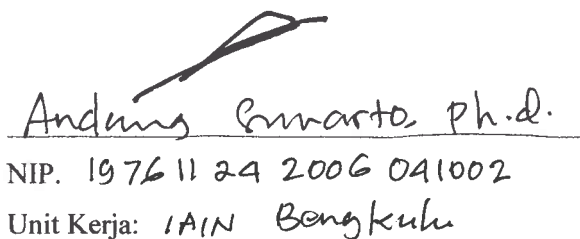 Andang Sunarto, Ph.d.
NIP. 19761124 2006 041002
Unit Kerja: IAIN Bengkulu